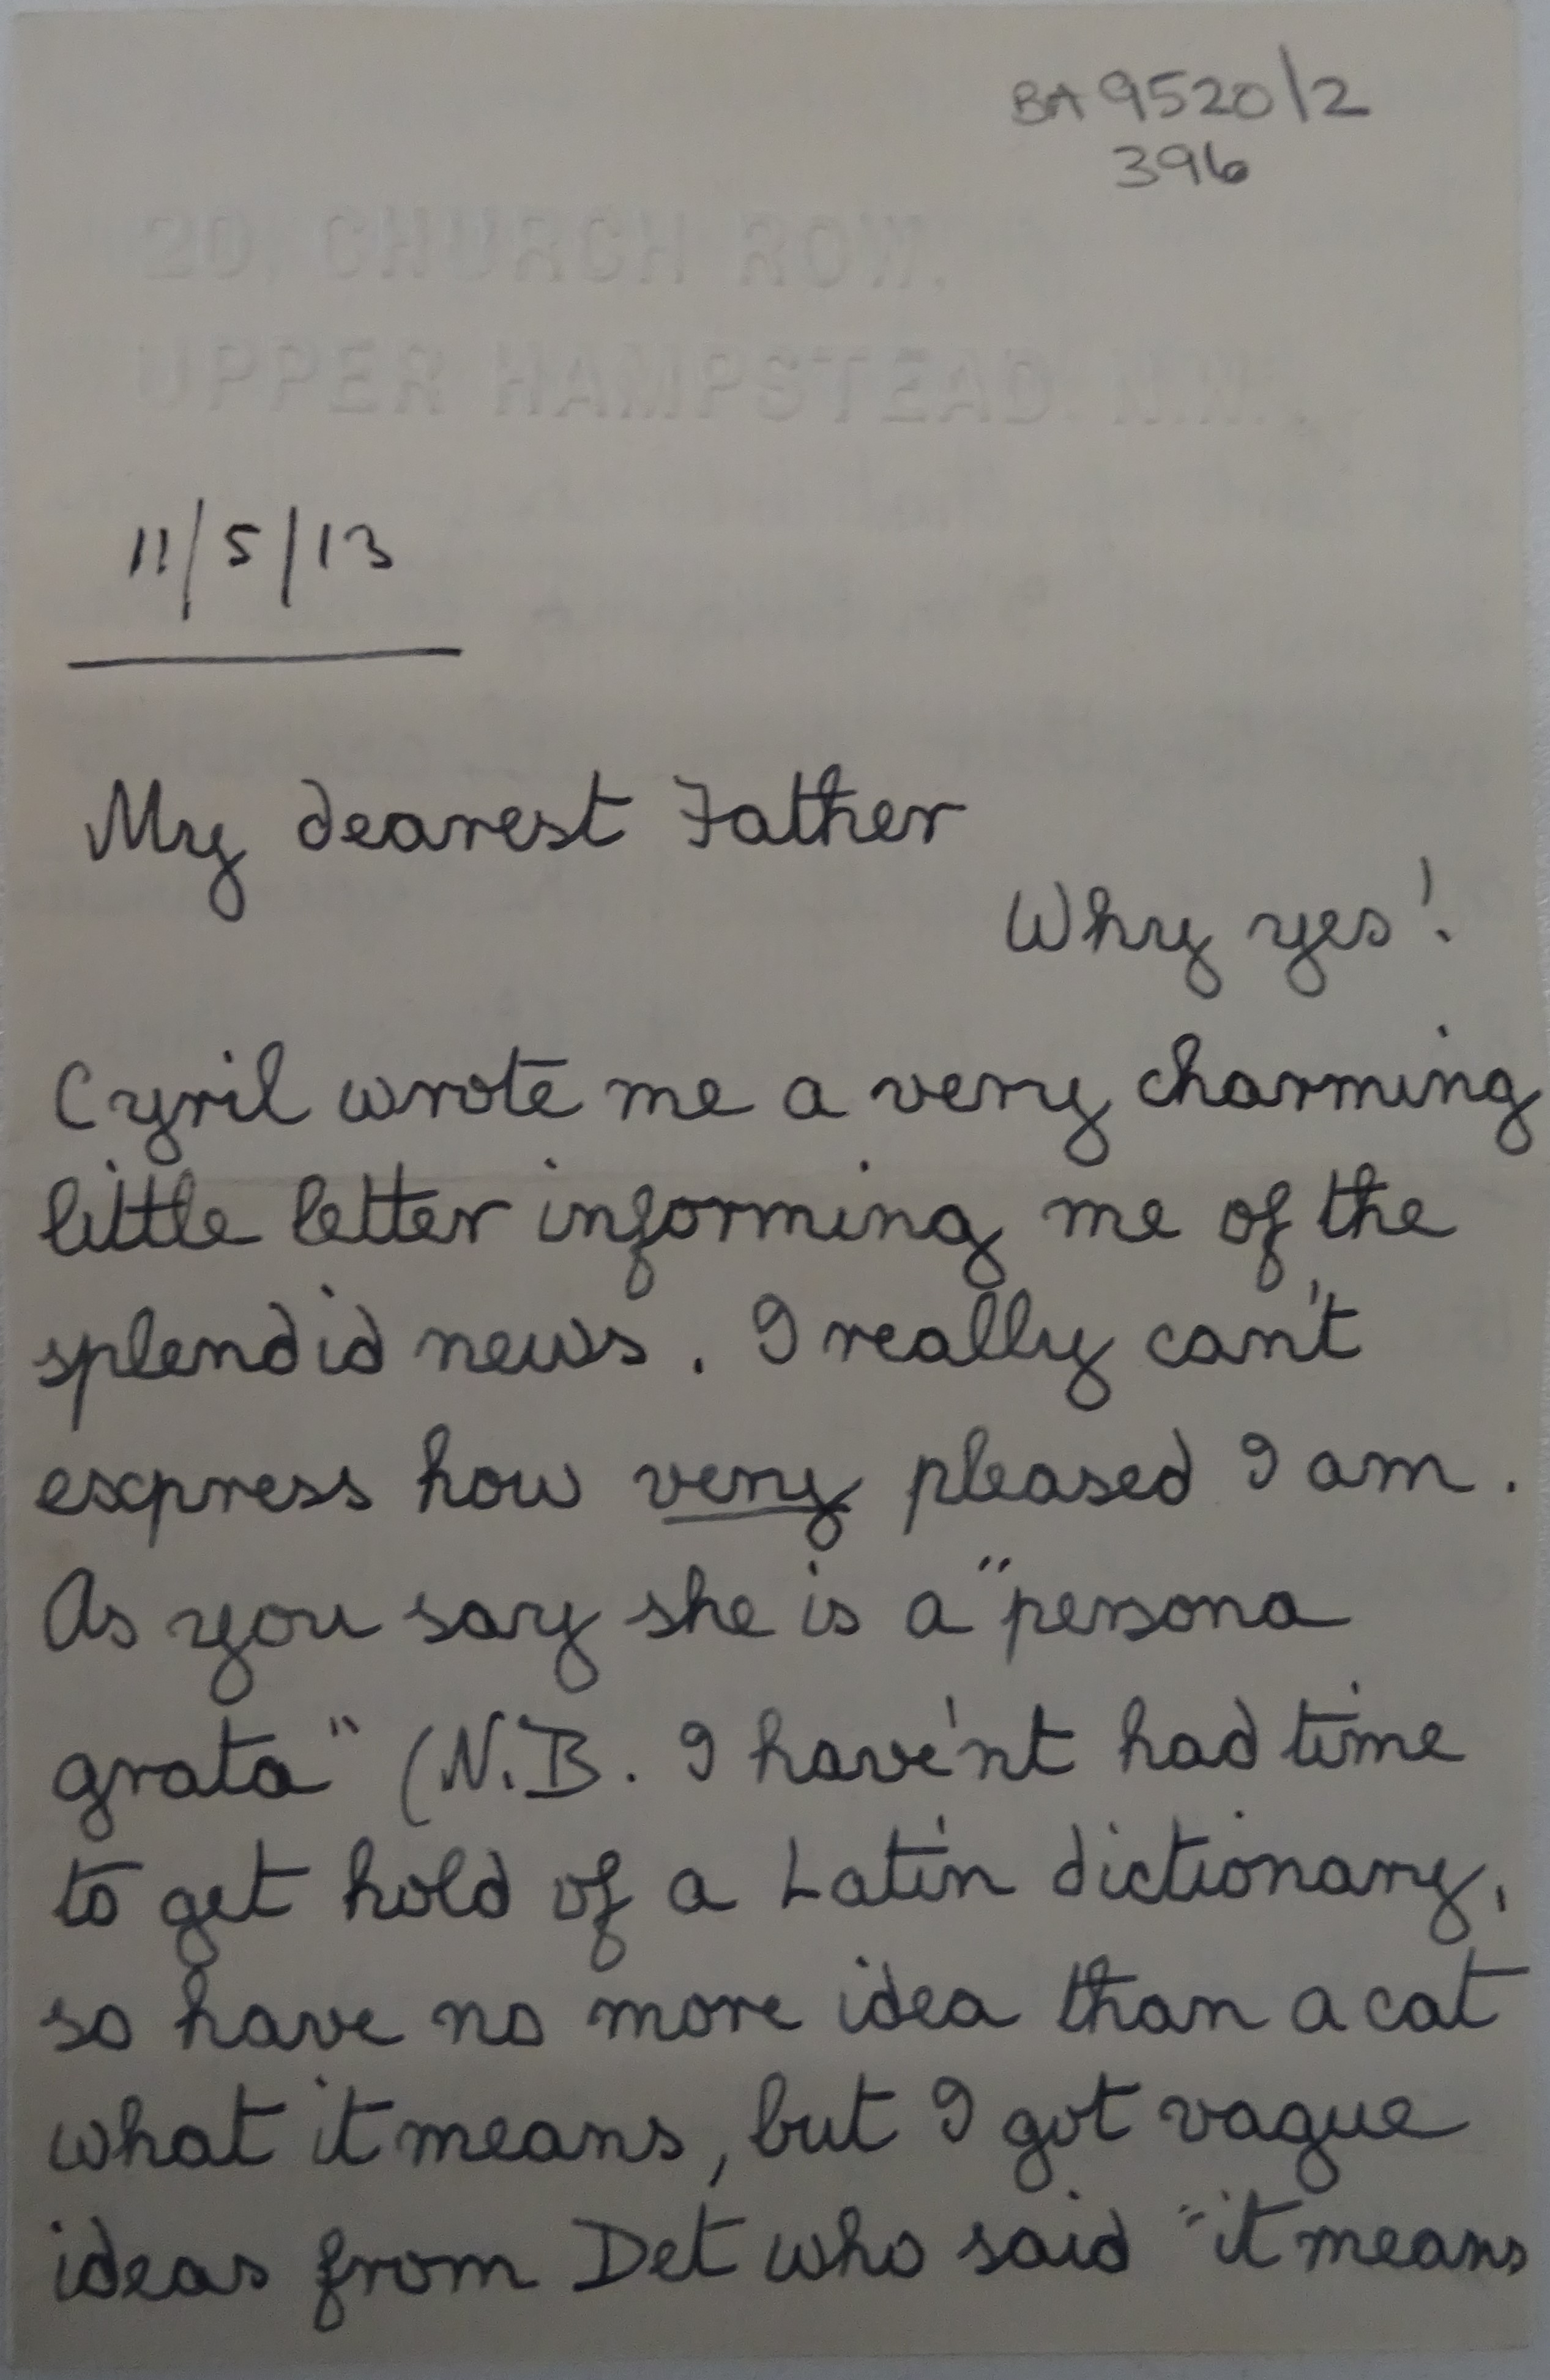 BA 9520/2
396
20, CHURCH ROW,
UPPER HAMPSTEAD. N.W.
11/5/13
My dearest Father
Why yes!
Cyril wrote me a very charming
little letter informing me of the
splendid news. I really can't
express how very pleased I am.
As you say she is a "persona
grata" (N.B. I have'nt had time
to get hold of a Latin dictionary,
so have no more idea than a cat
what it means, but I got vague
ideas from Det who said "it means